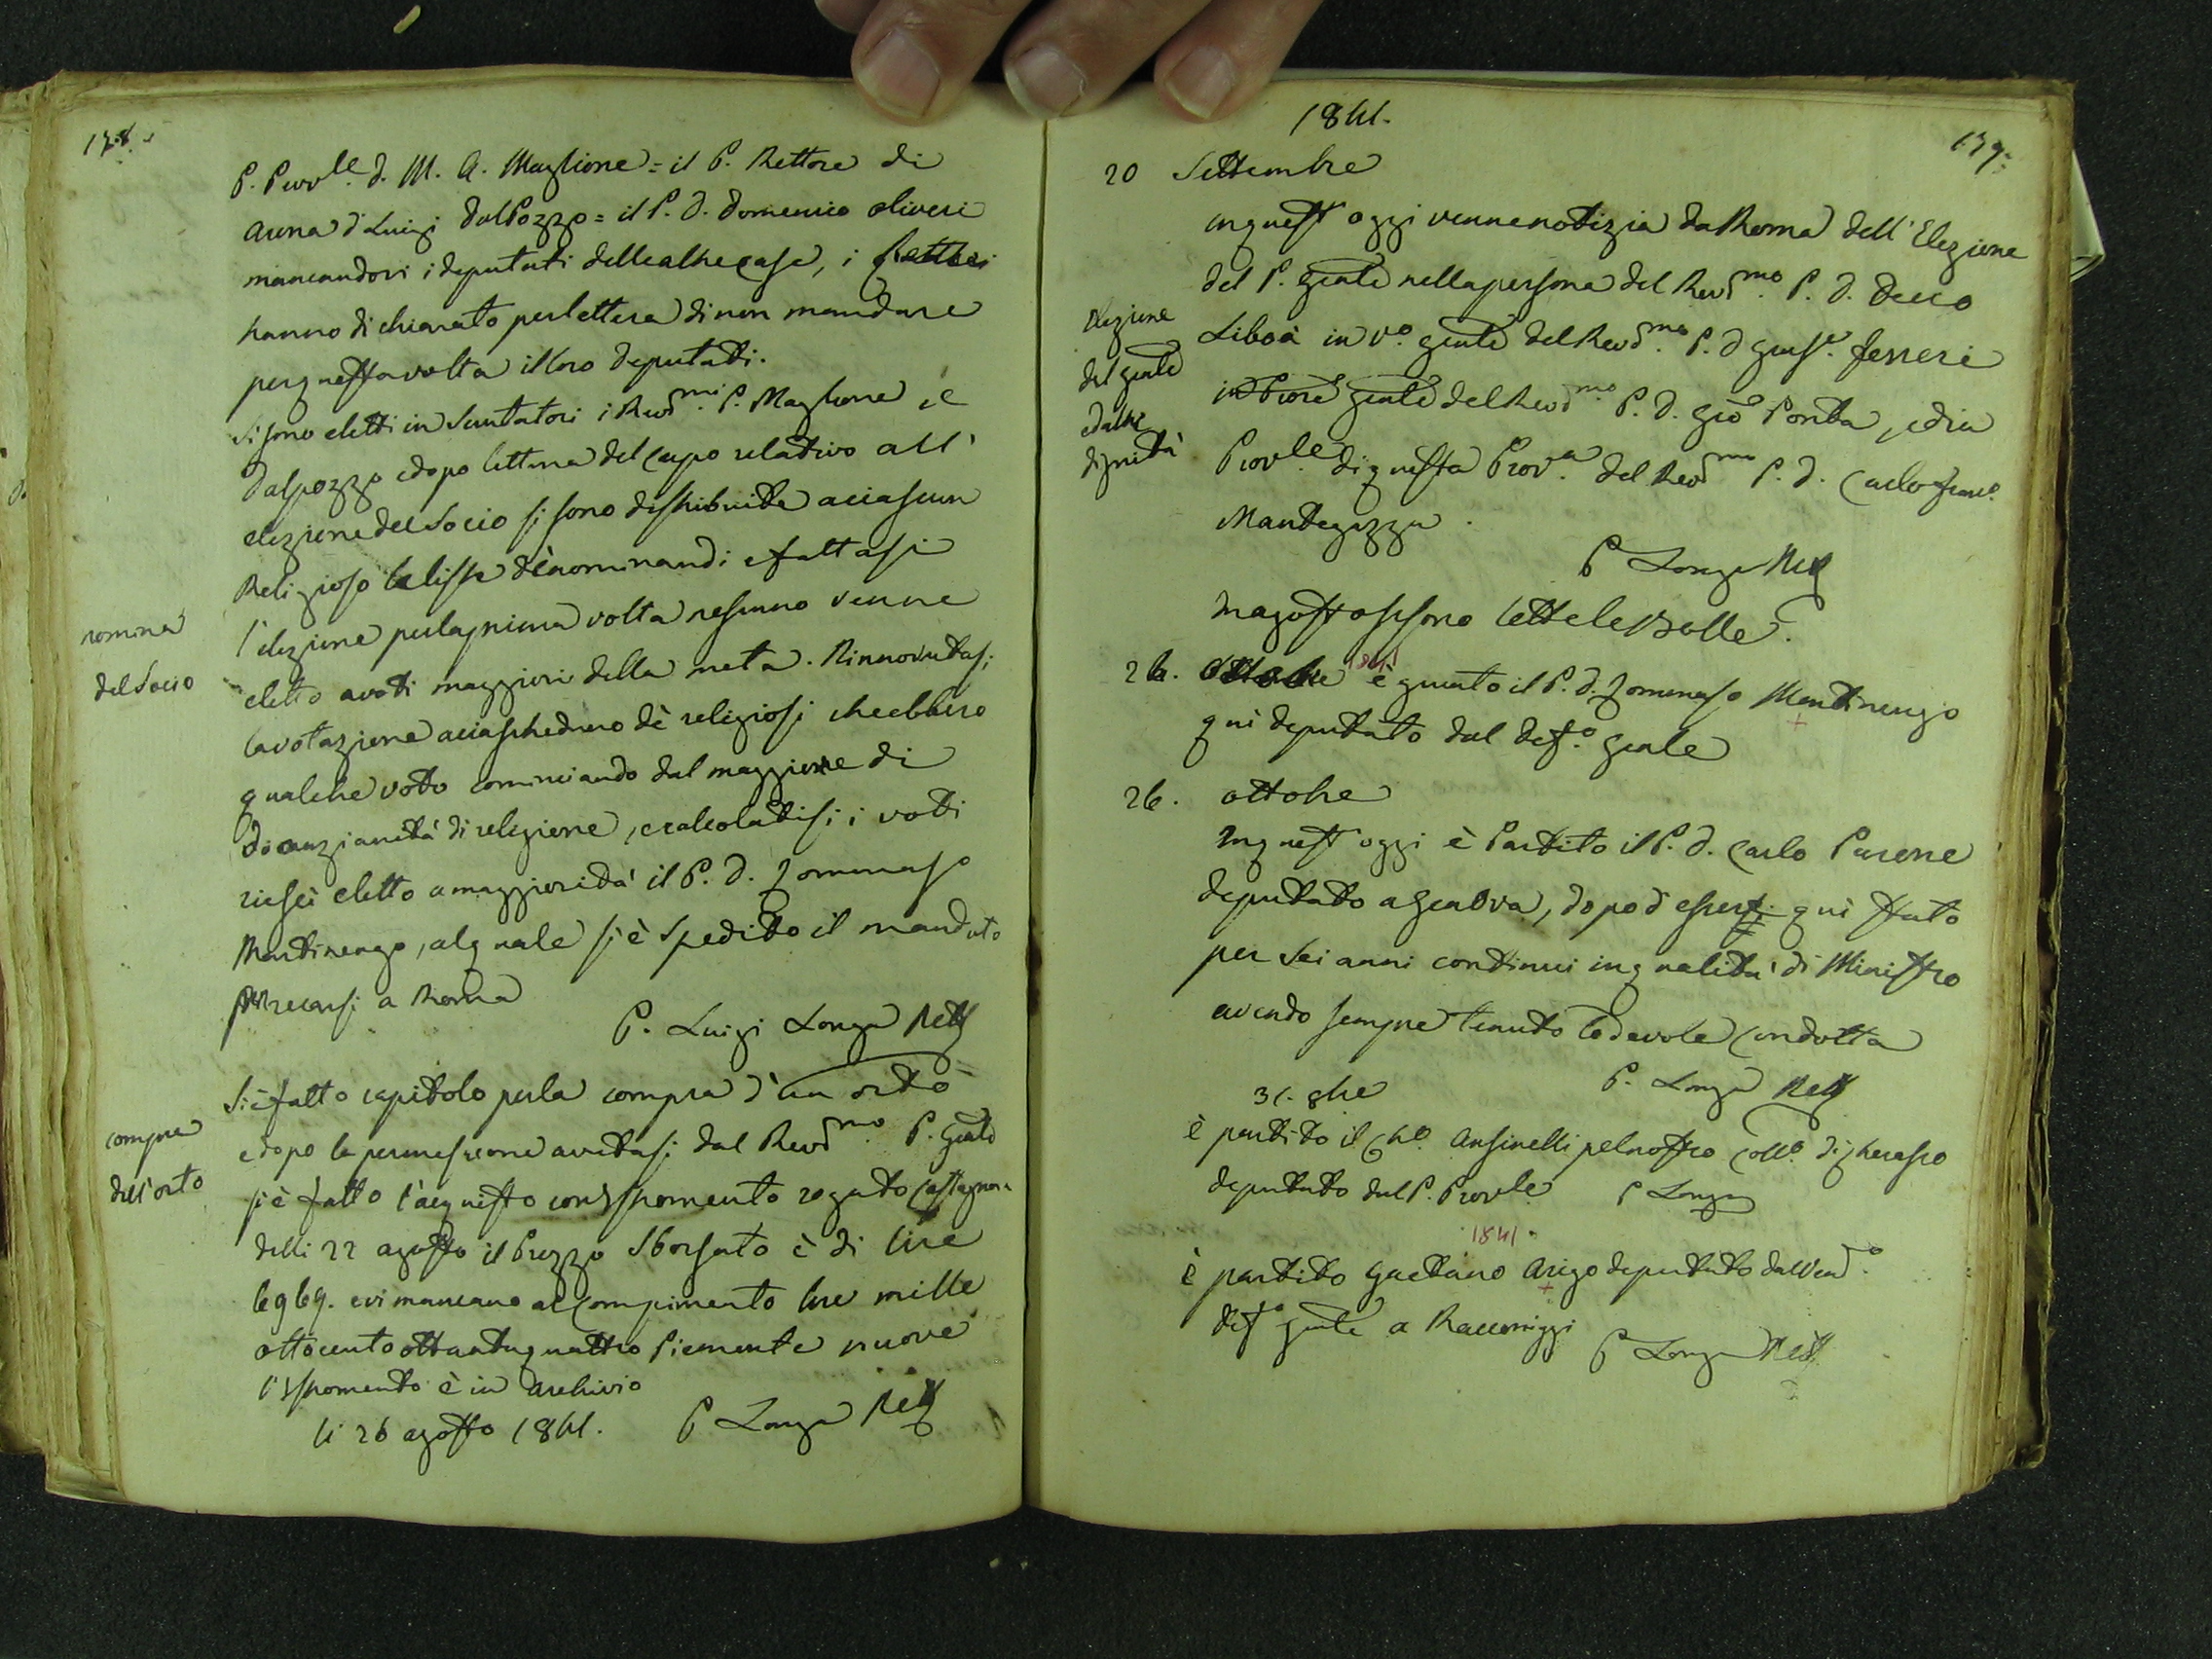 178.
P. Provle. D. M. A. Maglione = il P. Rettore di
Arona D. Luigi Dalpozzo = il P. D. Domenico Oliveri
mancandovi i deputati delle altre case, i Rettori
hanno dichiarato per lettera di non mandare
per questa volta il loro deputati.
Si sono eletti in Scrutatori i Revdmi. P. Maglione, e
Dalpozzo e dopo lettura del capo relativo all'
elezione del Socio si sono distribuite a ciascun
Religioso le liste de' nominandi e fattasi
nomina
del Socio
l'elezione per la prima volta nessuno venne
eletto a voti maggiori della metà. Rinnovatasi
la votazione a ciascheduno dè religiosi che ebbero
qualche voto cominciando dal maggiore di
di anzianità di religione, e calcolatisi i voti
riescì eletto a maggiorità il P. D. Tommaso
Martinengo, al quale si è spedito il mandato
per recarsi a Roma
P. Luigi Longa Rett
Si è fatto capitolo per la compra d'un orto
e dopo la permessione avutasi dal Revdmo. P. Gnale
compra
dell'orto
si è fatto l'acquisto con Istromento rogato Castagnone
delli 22 agosto il Prezzo Sborsato è di lire
6969. e vi mancano al compimento lire mille
ottocento ottantaquattro Piemonte nuove
l'Istromento è in Archivio
li 26 agosto 1841. P Longa Rett
1841.
179.
20 Settembre
in quest'oggi venne notizia da Roma dell'Elezione
del P. Gnale nella persona del Revdmo. P. D. Decio
Elezione
del Gnale
e altre
dignità
Libois in Vo. Gnale del Revdmo. P. D Giuse. Ferreri
in Proce Gnale del Revdmo. P. D. Gio Ponta, ed in
Provle di questa Prova. del Revdmo P. D. Carlo Franco.
Mantegazza.
P Longa Rett
in agosto si sono lette le Bolle.
26. Ottobre 1841 è giunto il P. D. Tommaso Martinengo
quì deputato dal Defo. Gnale
26. ottobre
In quest'oggi è Partito il P. D. Carlo Parone
deputato a Genova, dopo d'esser quì stato
per sei anni continui in qualità di Ministro
avendo sempre tenuto lodevole condotta
P. Longa Rett
31. 8bre
è partito il Cho. Ansinelli pel nostro Collo. di Cherasco
deputato dal P. Provle P Longa
1841.
è partito Gaetano Arigo deputato dal Vendo.
Defo Gnale a Racconiggi P Longa Rett